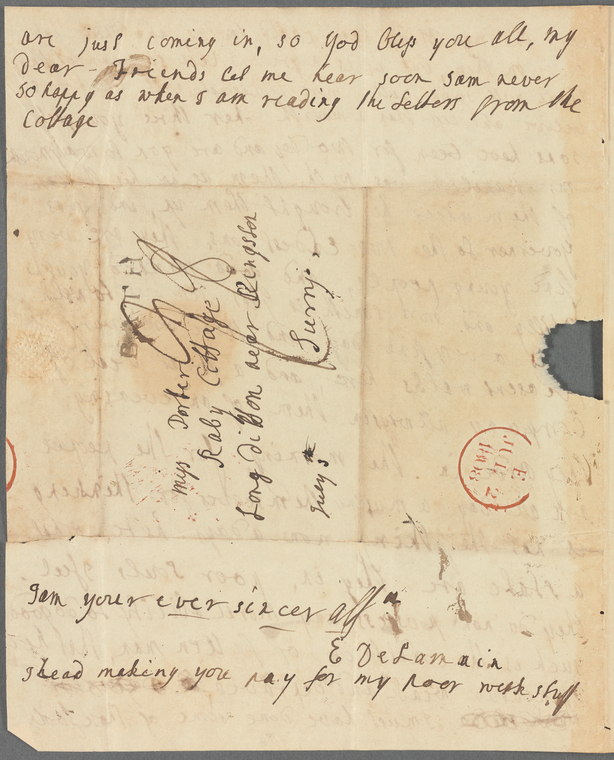 are just coming in, so God bless you all, my
Dear - Friends let me hear soon I am never
so happy as when I am reading the Letters from the
Cottage
BATH
Miss Porter
Raby Cottage
Long Ditton near Kingston
Surry.
E
JUL 2
I am your ever sincer aff
E DeLamain
I Head making you pay for my poor weak stuff